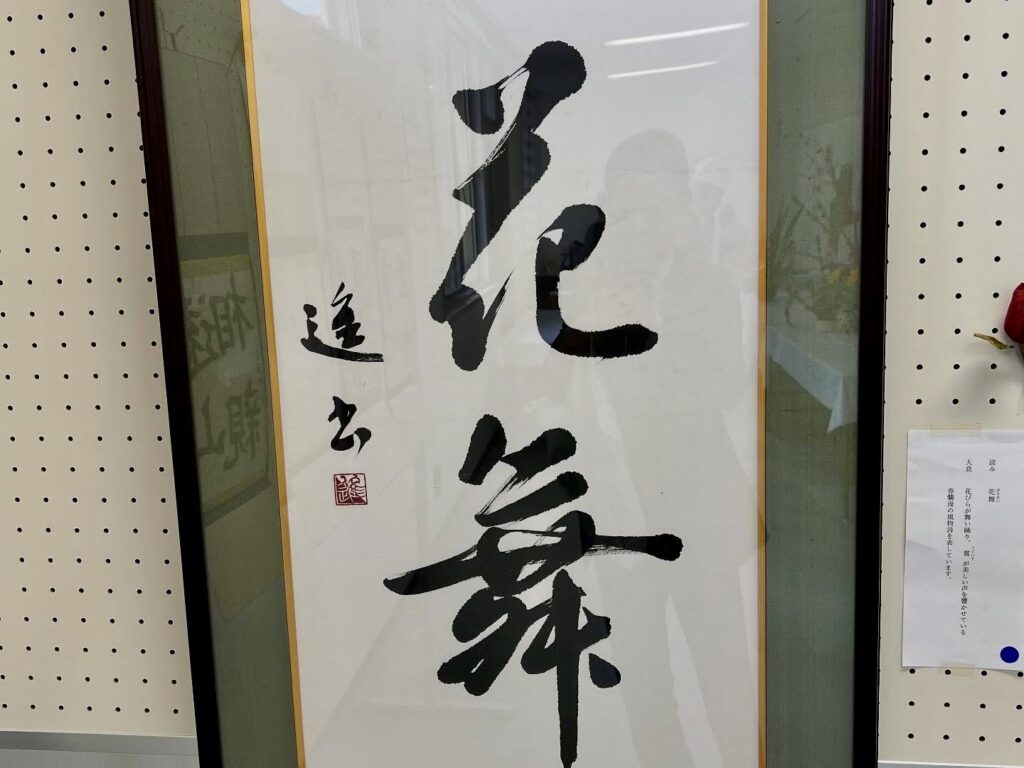 花舞
進書
読み 花舞
大意 花びらが舞い踊り、鶯が美しい声を響かせている
春爛漫の風物詩を表しています。